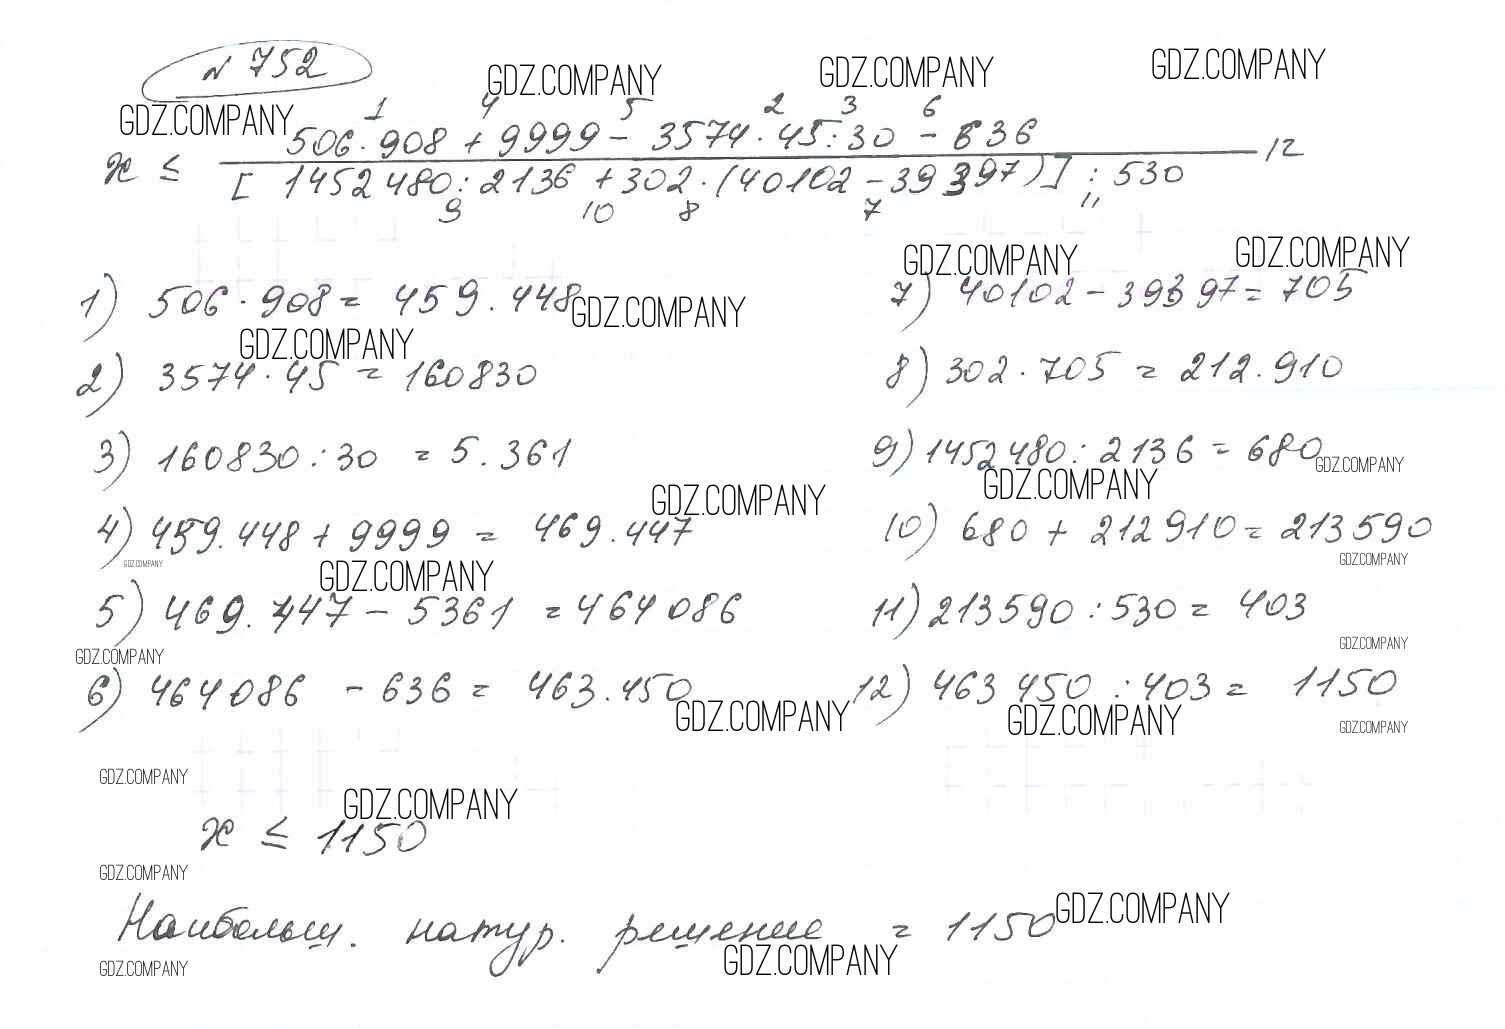 № 752
GDZ.COMPANY GDZ.COMPANY GDZ.COMPANY
GDZ.COMPANY
1 4 5 2 3 6
506 · 908 + 9999 - 3574 · 45 : 30 - 636
x ≤ 12
[ 1452480 : 2136 + 302 · (40102 - 39397)] : 530
9 10 8 7 11
GDZ.COMPANY GDZ.COMPANY
1) 506 · 908 = 459.448 GDZ.COMPANY
GDZ.COMPANY
2) 3574 · 45 = 160830
3) 160830 : 30 = 5.361
GDZ.COMPANY
4) 459.448 + 9999 = 469.447
GDZ.COMPANY GDZ.COMPANY
5) 469.447 - 5361 = 464086
GDZ.COMPANY
6) 464086 - 636 = 463.450
GDZ.COMPANY
7) 40102 - 39397 = 705
8) 302 · 705 = 212.910
9) 1452480 : 2136 = 680 GDZ.COMPANY
GDZ.COMPANY
10) 680 + 212910 = 213590
GDZ.COMPANY
11) 213590 : 530 = 403
GDZ.COMPANY
12) 463450 : 403 = 1150
GDZ.COMPANY GDZ.COMPANY
GDZ.COMPANY
GDZ.COMPANY
x ≤ 1150
GDZ.COMPANY
Наибольш. натур. решение = 1150 GDZ.COMPANY
GDZ.COMPANY GDZ.COMPANY